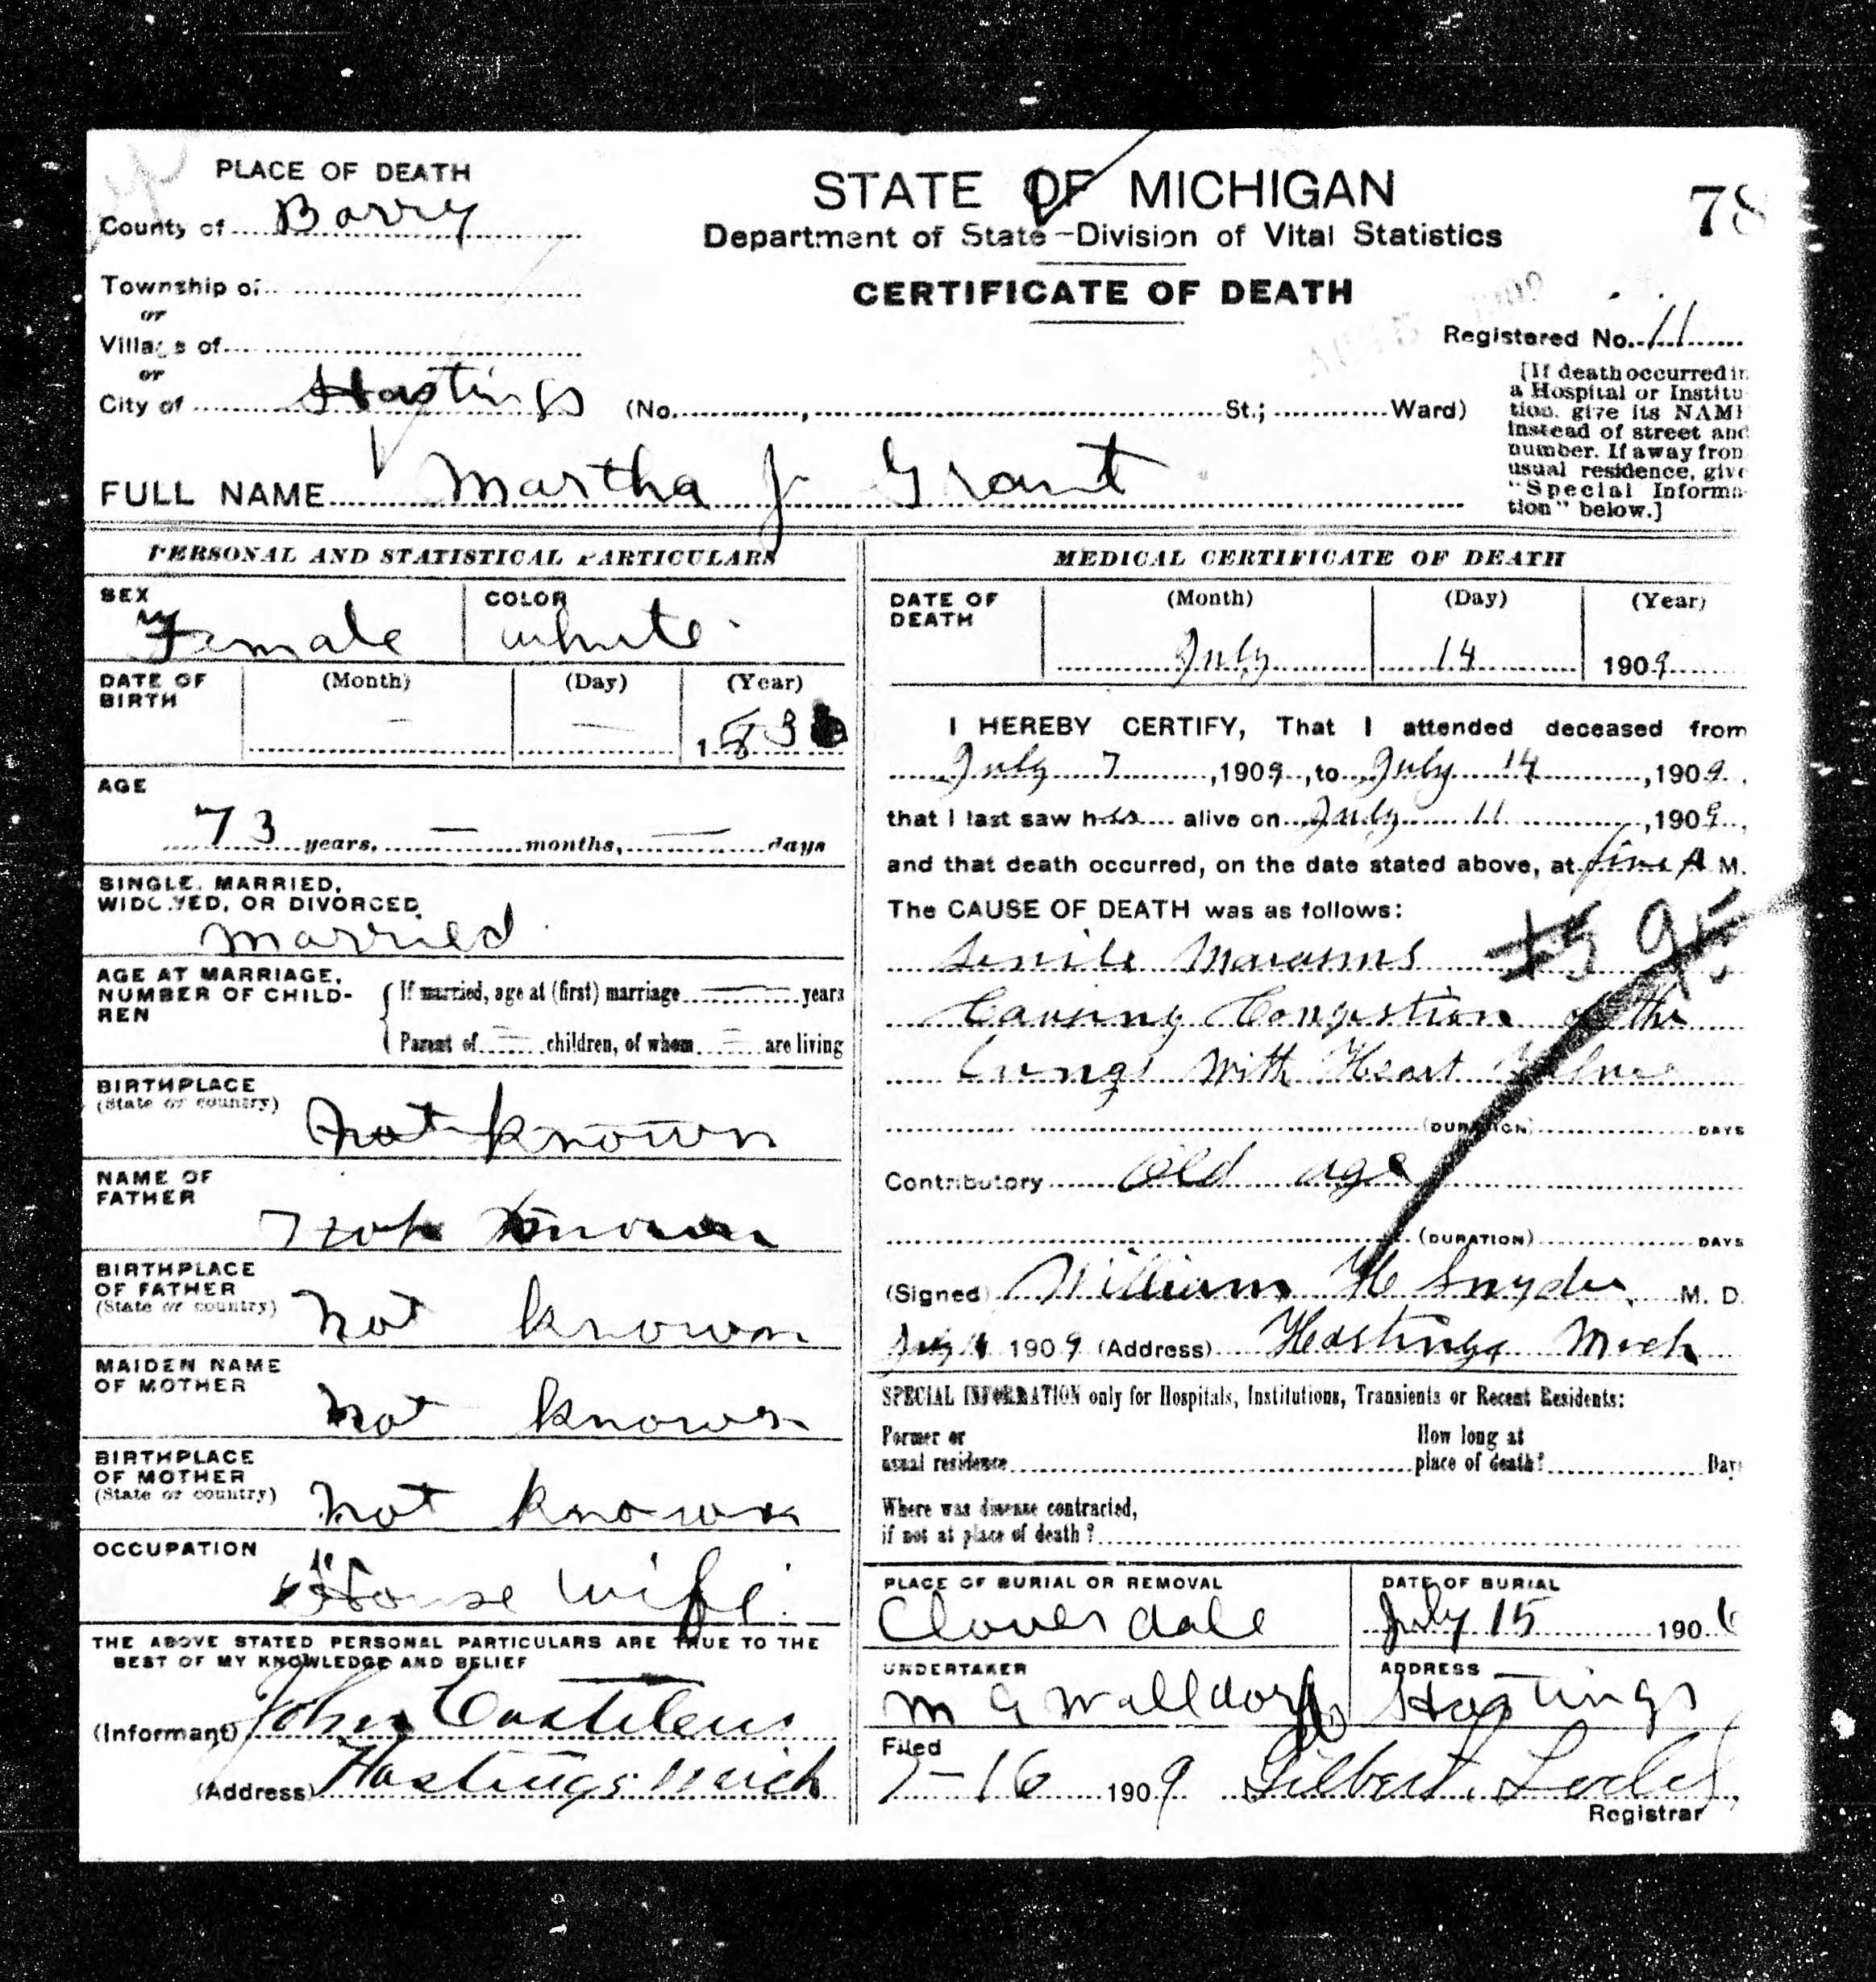 PLACE OF DEATH
County of Barry
Township of
or
Village of
or
City of Hastings (No. , St.; Ward)
STATE OF MICHIGAN
Department of State—Division of Vital Statistics
CERTIFICATE OF DEATH
78
Registered No. 11
[If death occurred in
a Hospital or Institu
tion, give its NAME
instead of street and
number. If away from
usual residence, give
"Special Informa-
tion" below.]
FULL NAME Martha J. Grant
PERSONAL AND STATISTICAL PARTICULARS
SEX
Female
COLOR
white
DATE OF BIRTH
(Month) (Day) (Year)
— — 183
AGE
73 years, — months, — days
SINGLE, MARRIED,
WIDOWED, OR DIVORCED
married
AGE AT MARRIAGE,
NUMBER OF CHILD-
REN
If married, age at (first) marriage — years
Parent of — children, of whom — are living
BIRTHPLACE
(State or country)
not known
NAME OF
FATHER
not known
BIRTHPLACE
OF FATHER
(State or country)
not known
MAIDEN NAME
OF MOTHER
not known
BIRTHPLACE
OF MOTHER
(State or country)
not known
OCCUPATION
House wife
THE ABOVE STATED PERSONAL PARTICULARS ARE TRUE TO THE
BEST OF MY KNOWLEDGE AND BELIEF
(Informant) John
(Address) Hastings Mich
MEDICAL CERTIFICATE OF DEATH
DATE OF
DEATH
(Month) (Day) (Year)
July 14 1909
I HEREBY CERTIFY, That I attended deceased from
July 7, 1909, to July 14, 1909,
that I last saw her alive on July 11, 1909,
and that death occurred, on the date stated above, at five A M.
The CAUSE OF DEATH was as follows:
Senile Marasmus
Causing Congestion of the
Lungs with Heart Failure
(DURATION) DAYS
Contributory Old age
(DURATION) DAYS
(Signed) William H Snyder M. D.
1909 (Address) Hastings Mich
SPECIAL INFORMATION only for Hospitals, Institutions, Transients or Recent Residents:
Former or
usual residence
How long at
place of death? Days
Where was disease contracted,
if not at place of death?
PLACE OF BURIAL OR REMOVAL
Cloverdale
DATE OF BURIAL
July 15 190
UNDERTAKER
ADDRESS
Hastings
Filed
7-16 1909 Gilbert
Registrar